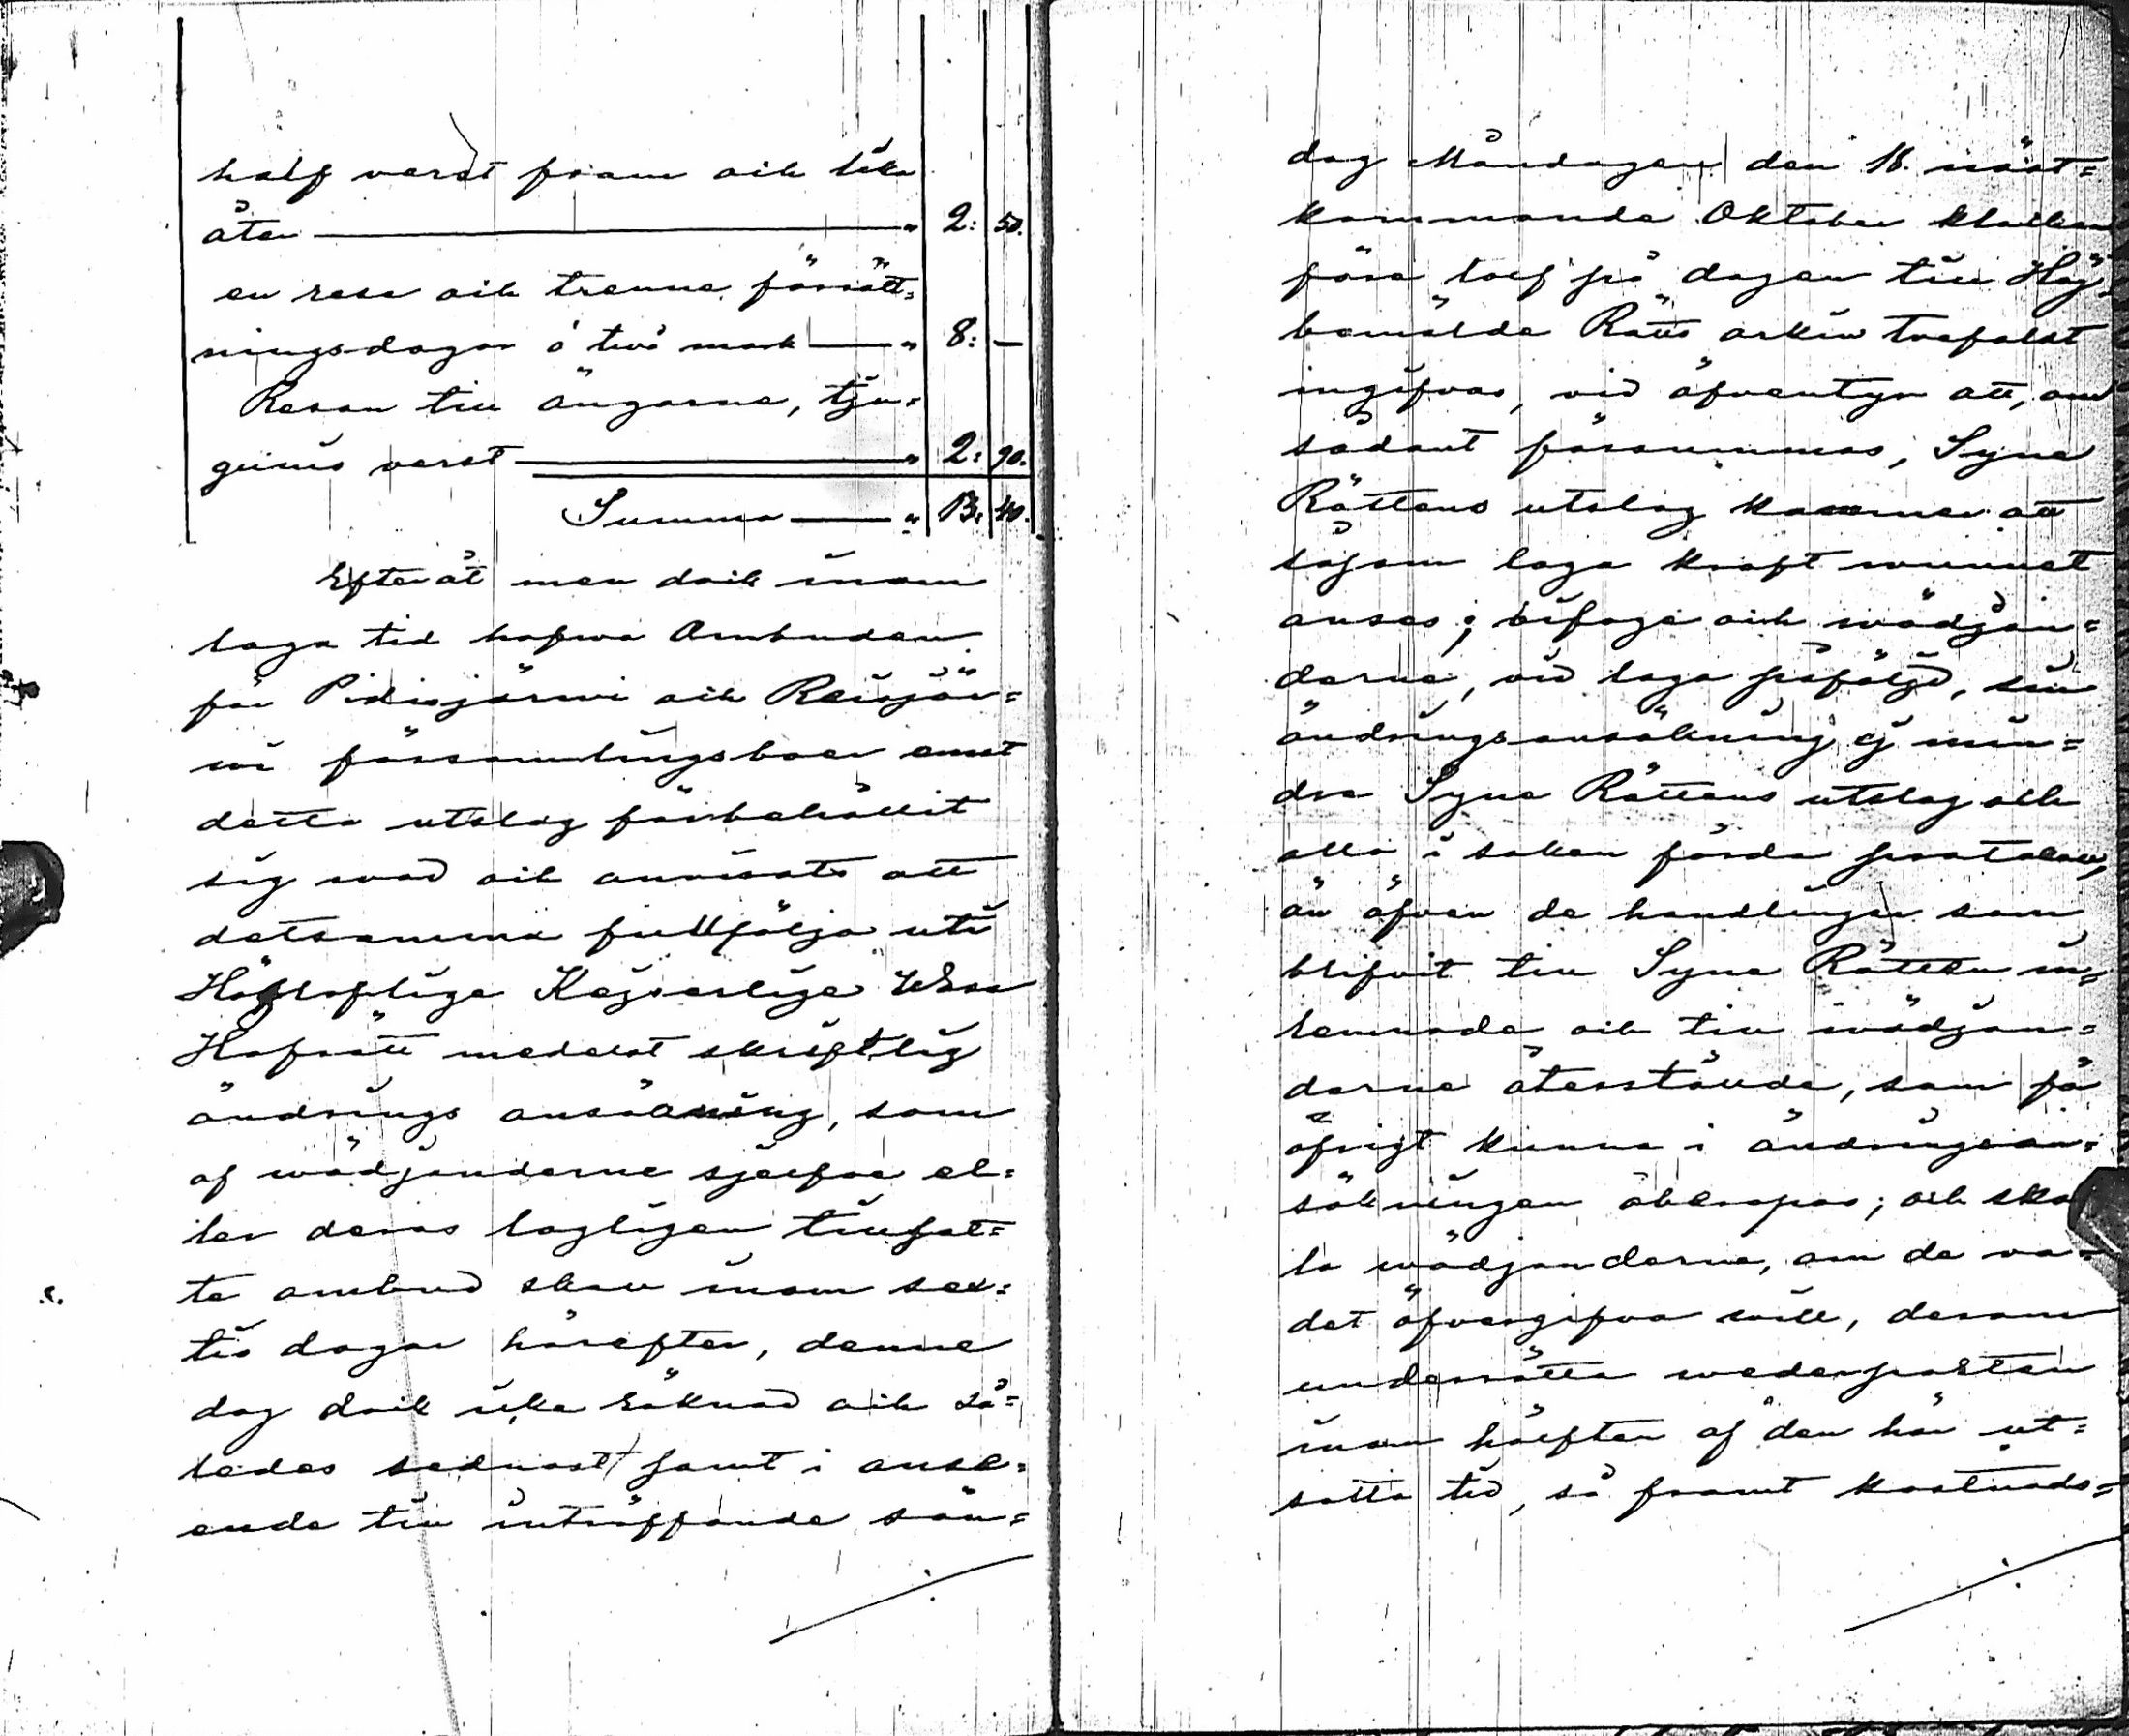 half verst fram och lika
åter " 2: 50.
en resa och trenne förrätt=
ningsdagar á två mark " 8: —
Resan till ängarne, tju=
gunio verst " 2: 90.
Summa " 13: 40.
Efteråt men dock inom
laga tid hafwa Ombuden
för Pidisjärwi och Reisjär=
wi församlingsboer emot
detta utslag förbehållit
sig wad och anwisats att
detsamma fullfölja uti
Höglofliga Kejserliga Wasa
Hofrätt medelst skriftlig
ändrings ansökning, som
af wädjanderne sjelfva el=
ler deras lagligen befull=
te ombud skall inom sex=
tio dagar härefter, denne
dag dock icke räknad och så=
ledes sednast samt i anse=
ende till inträffande sön=
dag Måndagen den 18. näst=
kommande Oktober klockan
före tolf på dagen till Hög=
bemälde Rätts arkiv trefaldt
ingifvas, vid äfventyr att, om
sådant försummas, Syne
Rättens utslag kommer att
såsom laga kraft wunnet
anses; bifoge och wädjan=
darne, vid laga påföljd, sin
ändringsansökning ej min=
dre Syne Rättens utslag och
alla i saken förda protokoll,
än äfven de handlingar som
blifvit till Syne Rätten in=
lemnade och till wädjan=
darne återstälde, som för
öfrigt kunna i ändringsan=
sökningen åberopas; och sko=
la wädjanderne, om de va=
det öfvergifva will, derom
underrätta wederparten
inom hälften af den här ut=
satta tid, så framt kostnads=